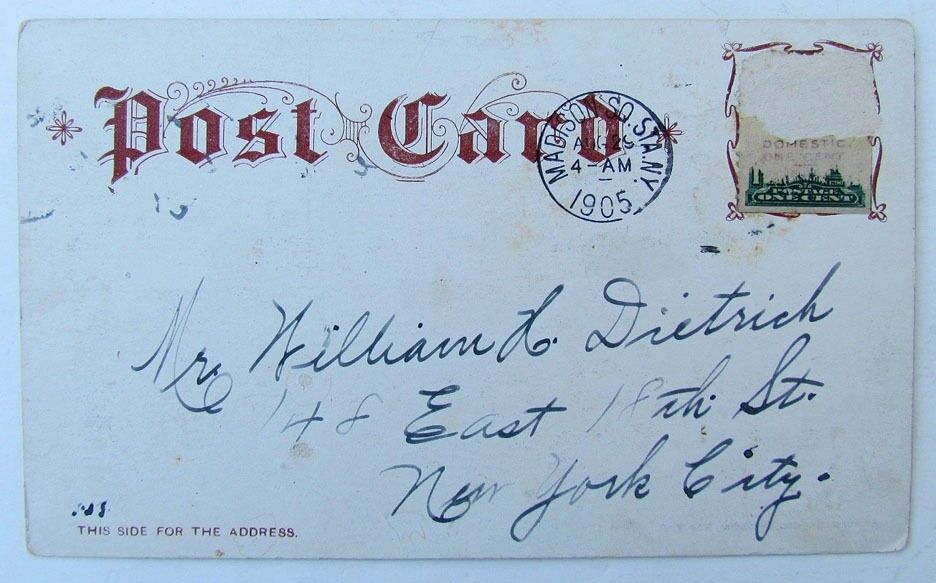 Post Card
MADISON SQ. STA. N.Y.
4-AM
1905
DOMESTIC
ONE CENT
POSTAGE
ONE CENT
Mr. William H. Dietrich
148 East 18th. St.
New York City.
THIS SIDE FOR THE ADDRESS.